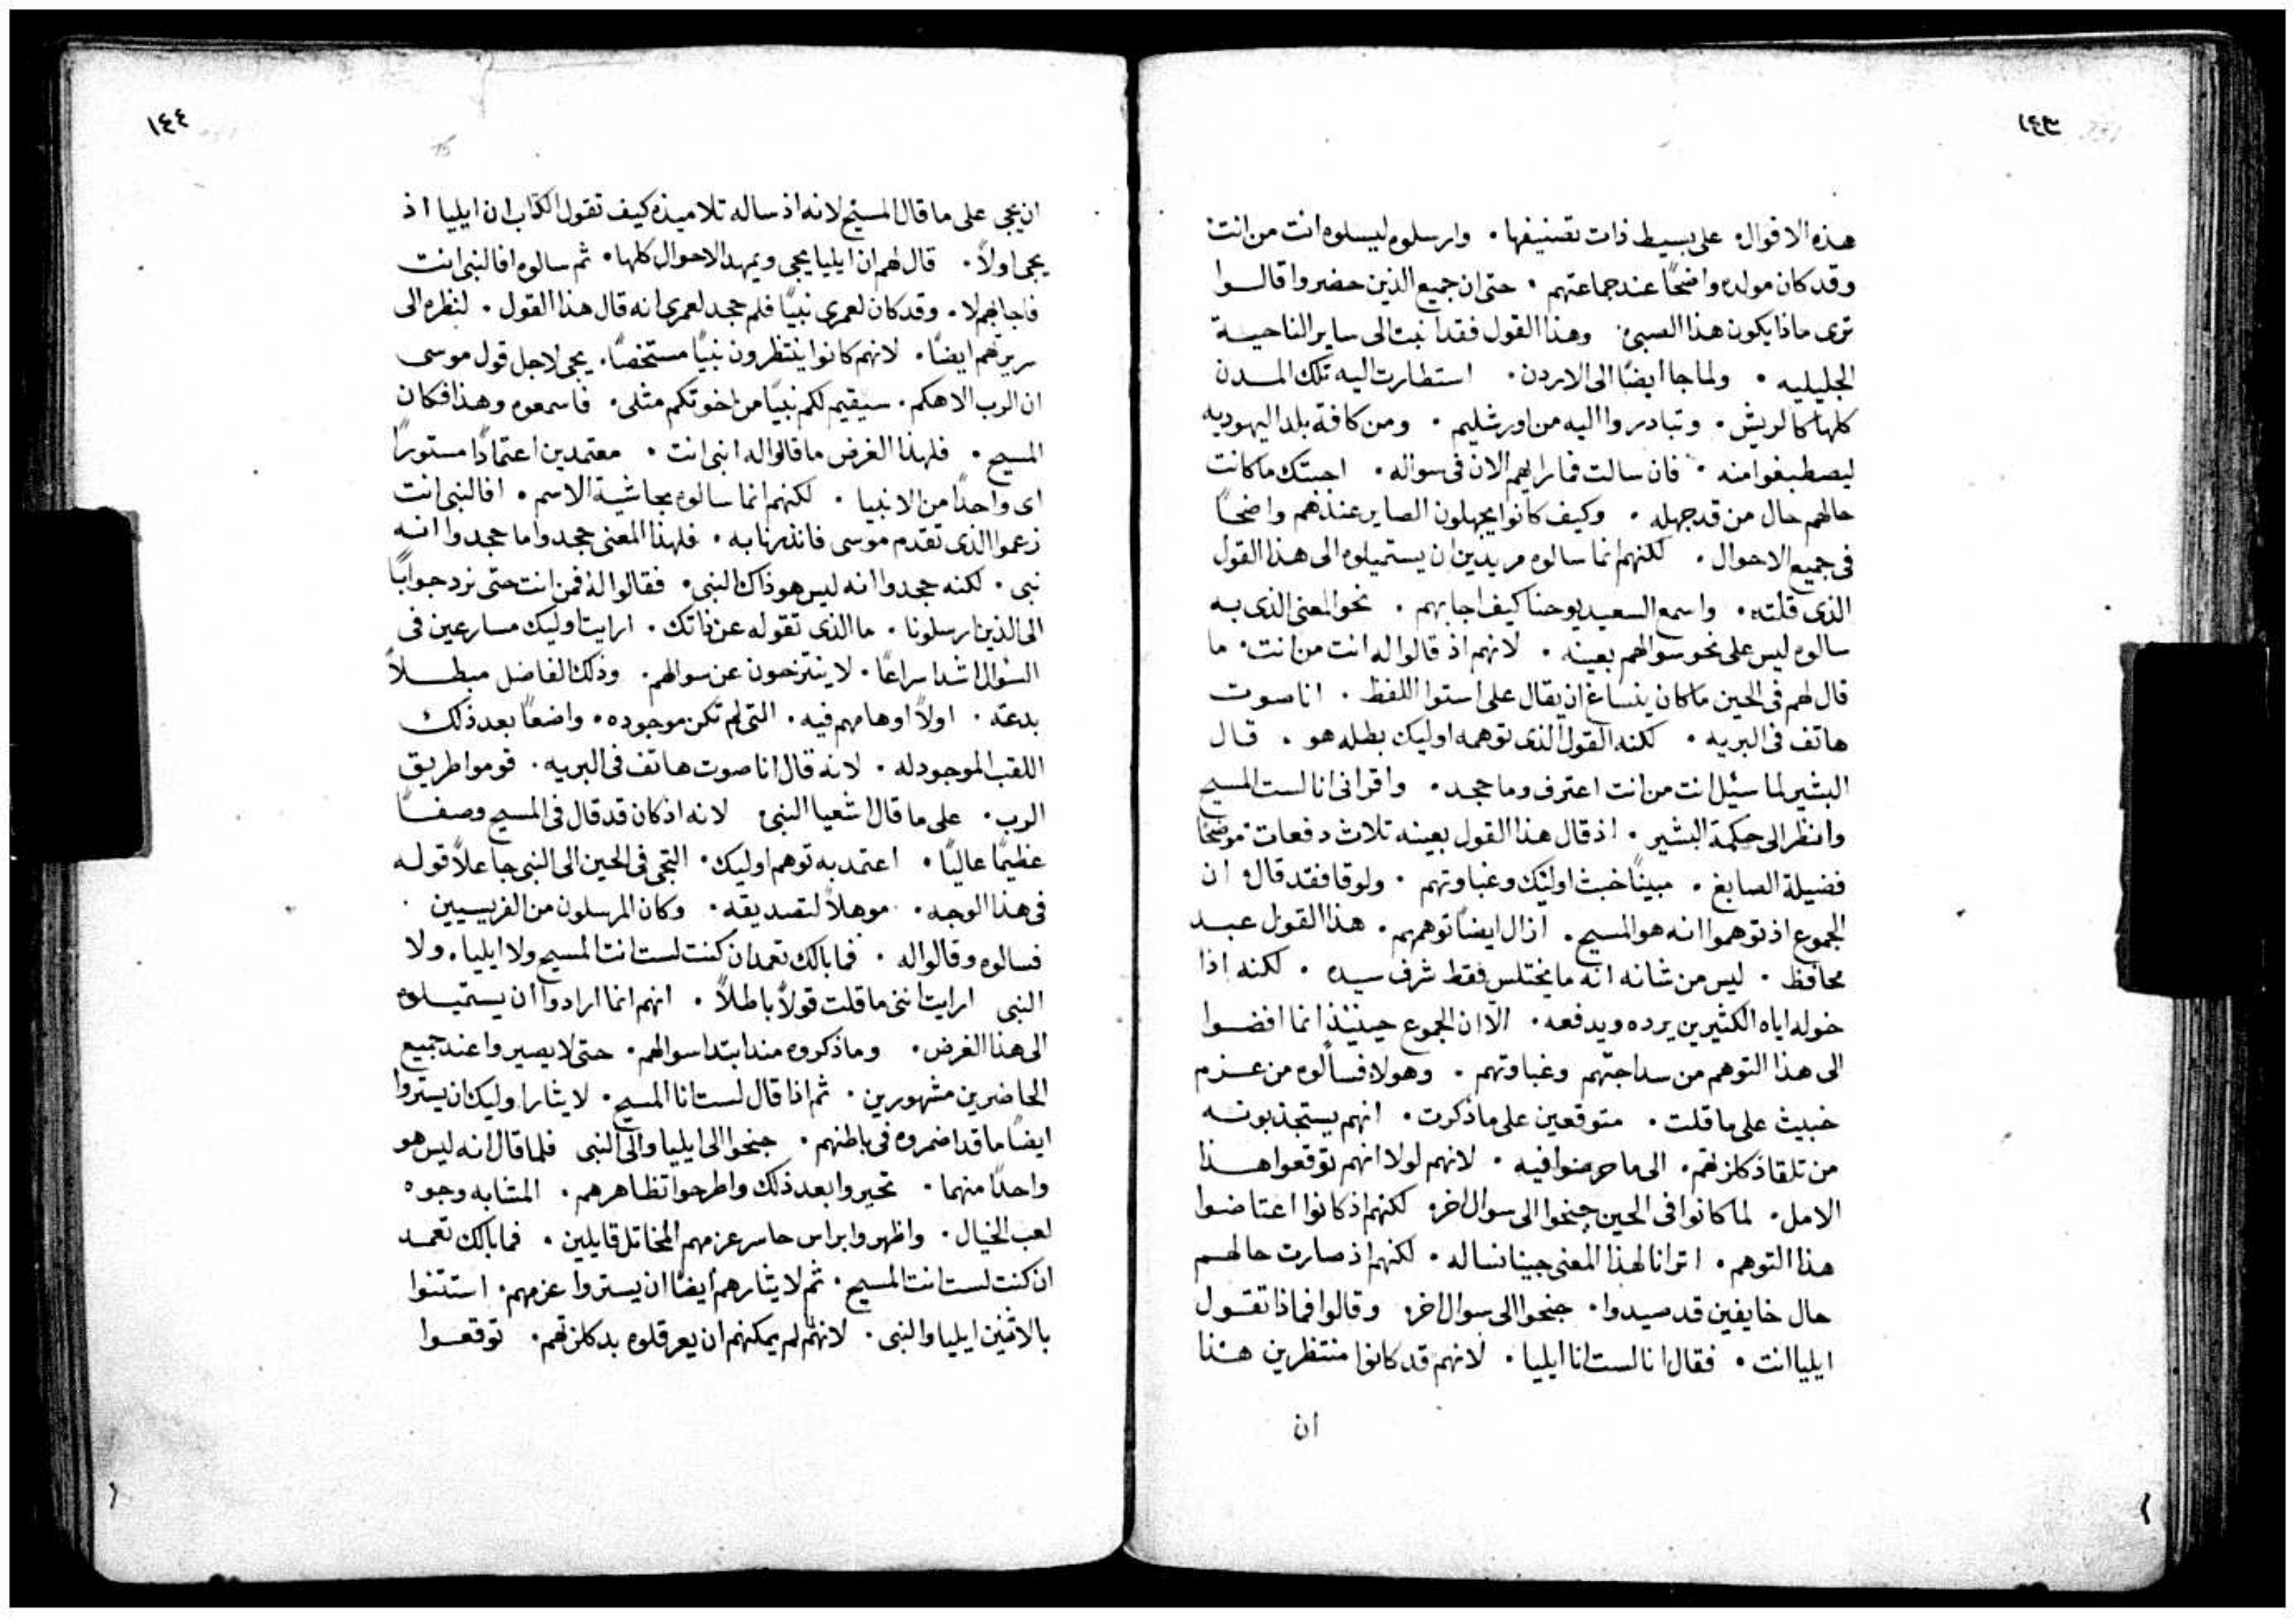 ١٤٣
هذه الاقوال على بسيط ذات تصنيفها. وارسلوه ليسلوه انت من انت
وقد كان مولده واضحًا عند جماعتهم. حتى ان جميع الذين حضروا قالوا
ترى ماذا يكون هذا الصبي. وهذا القول فقد انبت الى ساير الناحية
الجليليه. ولما جا ايضًا الى الاردن. استطارت اليه تلك المدن
كلها كالريش. وتبادروا اليه من اورشليم. ومن كافة بلد اليهوديه
ليصطبغوا منه. فان سالت فما رايهم الان في سواله. اجبتك ما كانت
حالهم حال من قد جهله. وكيف كانوا يجهلون الصاير عندهم واضحًا
في جميع الاحوال. لكنهم انما سالوه مريدين ان يستميلوه الى هذا القول
الذي قلته. واسمع السعيد يوحنا كيف اجابهم. نحو المعنى الذي به
سالوه ليس على نحو سوالهم بعينه. لانهم اذ قالوا له انت من انت. ما
قال لهم في الحين ما كان ينساغ ان يقال على استوا اللفظ. انا صوت
هاتف في البريه. لكنه القول الذي توهمه اوليك بطله هو. قال
البشير لما سئيل انت من انت اعترف وما جحد. واقر اني انا لست المسيح
وانظر الى حكمة البشير. اذ قال هذا القول بعينه تلاث دفعات موضحًا
فضيلة الصابغ. مبينًا خبث اوليك وغباوتهم. ولوقا فقد قال ان
الجموع اذ توهموا انه هو المسيح. ازال ايضًا توهمهم. هذا القول عبد
محافظ. ليس من شانه انه ما يختلس فقط شرف سيده. لكنه اذا
خوله اياه الكثيرين يرده ويدفعه. الا ان الجموع حينيذ انما افضوا
الى هذا التوهم من سداجتهم وغباوتهم. وهولا فسالوه من عزم
خبيث على ما قلت. متوقعين على ما ذكرت. انهم يستجذبونه
من تلقا ذكلزتهم. الى ما حرصوا فيه. لانهم لولا انهم توقعوا هذا
الامل. لما كانوا في الحين جنحوا الى سوال اخر. لكنهم اذ كانوا اعتاضوا
هذا التوهم. اترانا لهذا المعنى جينا نساله. لكنهم اذ صارت حالهم
حال خايفين قد صيدوا. جنحوا الى سوال اخر. وقالوا فماذا تقول
ايليا انت. فقال انا لست انا ايليا. لانهم قد كانوا منتظرين هذا
ان
١٤٤
ان يجي على ما قال المسيح لانه اذ ساله تلاميذه كيف تقول الكتاب ان ايليا اذ
يجي اولًا. قال لهم ان ايليا يجي ويمهد الاحوال كلها. ثم سالوه افالنبي انت
فاجابهم لا. وقد كان لعمري نبيًا فلم جحد لعمري انه قال هذا القول. لنظره الى
سريرتهم ايضًا. لانهم كانوا ينتظرون نبيًا مستخصًا. يجي لاجل قول موسى
ان الرب الاهكم. سيقيم لكم نبيًا من اخوتكم مثلي. فاسمعوه وهذا فكان
المسيح. فلهذا الغرض ما قالوا له انبي انت. معتمدين اعتمادًا مستورًا
اى واحدًا من الانبيا. لكنهم انما سالوه بحاشية الاسم. افالنبي انت
زعموا الذي تقدم موسى فانذرنا به. فلهذا المعنى جحدوا ما جحدوا انه
نبي. لكنه جحدوا انه ليس هو ذاك النبي. فقالوا له فمن انت حتى نرد جوابًا
الى الذين ارسلونا. ما الذي تقوله عن ذاتك. ارايت اوليك مسارعين في
السوال اشد اسراعًا. لا ينتزحون عن سوالهم. وذلك الفاضل مبطلًا
بدعته. اولًا اوهامهم فيه. التي لم تكن موجوده. واضعًا بعد ذلك
اللقب الموجود له. لانه قال انا صوت هاتف في البريه. قوموا طريق
الرب. على ما قال اشعيا النبي. لانه اذ كان قد قال في المسيح وصفًا
عظيمًا عاليًا. اعتمد به توهم اوليك. التجى في الحين الى النبي جاعلًا قوله
في هذا الوجه. موهلًا لتصديقه. وكان المرسلون من الفريسيين.
فسالوه وقالوا له. فما بالك تعمد ان كنت لست انت المسيح ولا ايليا. ولا
النبي ارايت انني ما قلت قولًا باطلًا. انهم انما ارادوا ان يستميلوه
الى هذا الغرض. وما ذكروه مند ابتدا سوالهم. حتى لا يصيروا عند جميع
الحاضرين مشهورين. ثم اذا قال لست انا المسيح. لايثار اوليك ان يستروا
ايضًا ما قد اضمروه في باطنهم. جنحوا الى ايليا والى النبي فلما قال انه ليس هو
واحدًا منهما. تحيروا بعد ذلك واطرحوا تظاهرهم. المشابه وجوه
لعب الخيال. واظهروا براس حاسر عزمهم المخاتل قايلين. فما بالك تعمد
ان كنت لست انت المسيح. ثم لايثارهم ايضًا ان يستروا عزمهم. استثنوا
بالاثنين ايليا والنبي. لانهم لم يمكنهم ان يعرقلوه بدكلزتهم. توقعوا